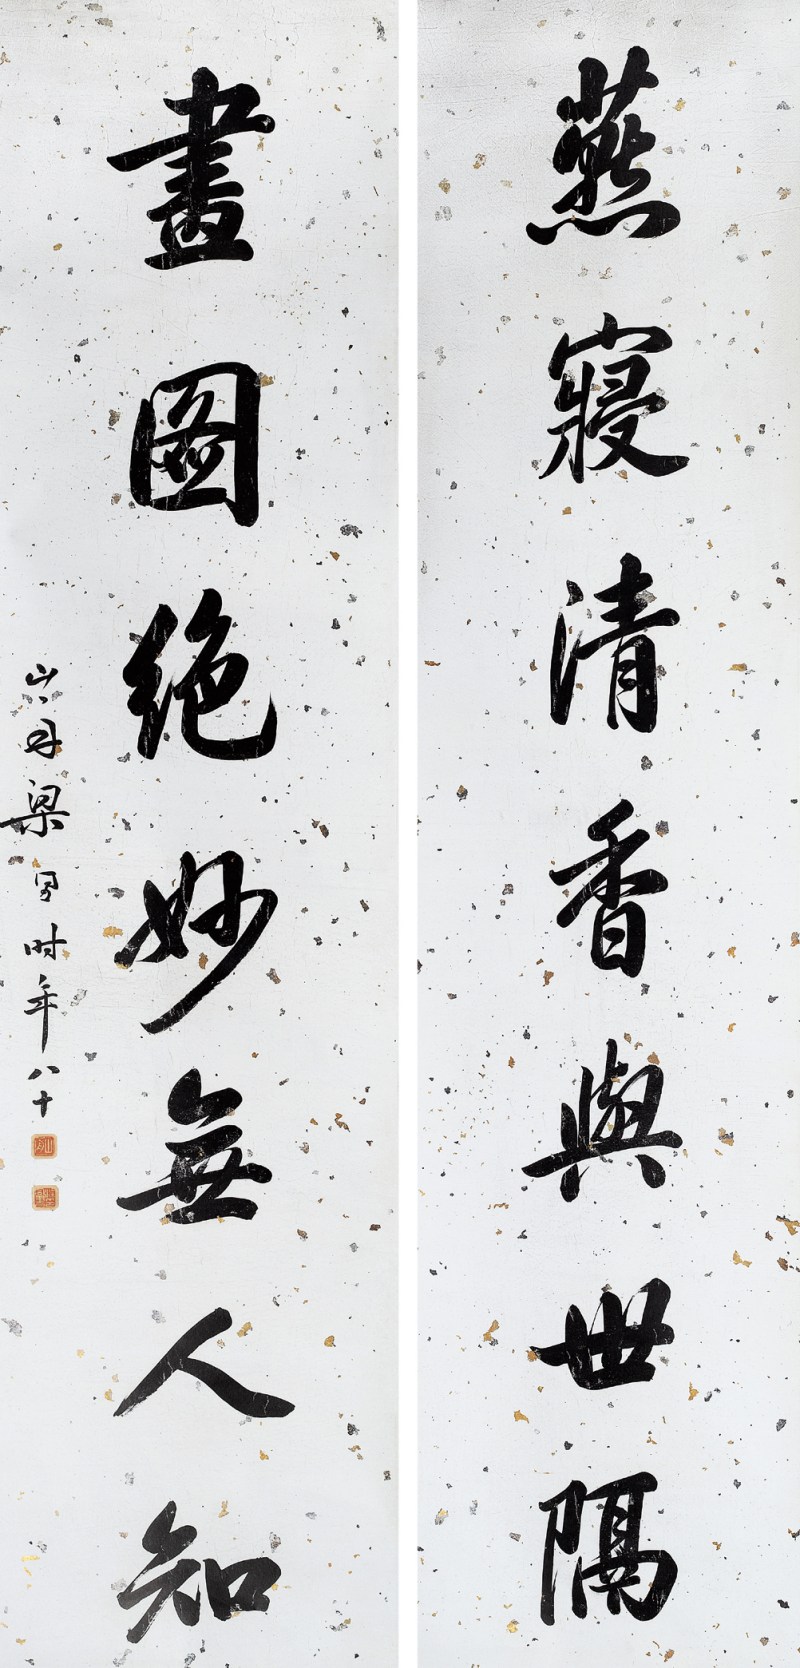 燕寢清香與世隔
畫圖絕妙無人知
山舟梁同書時年八十